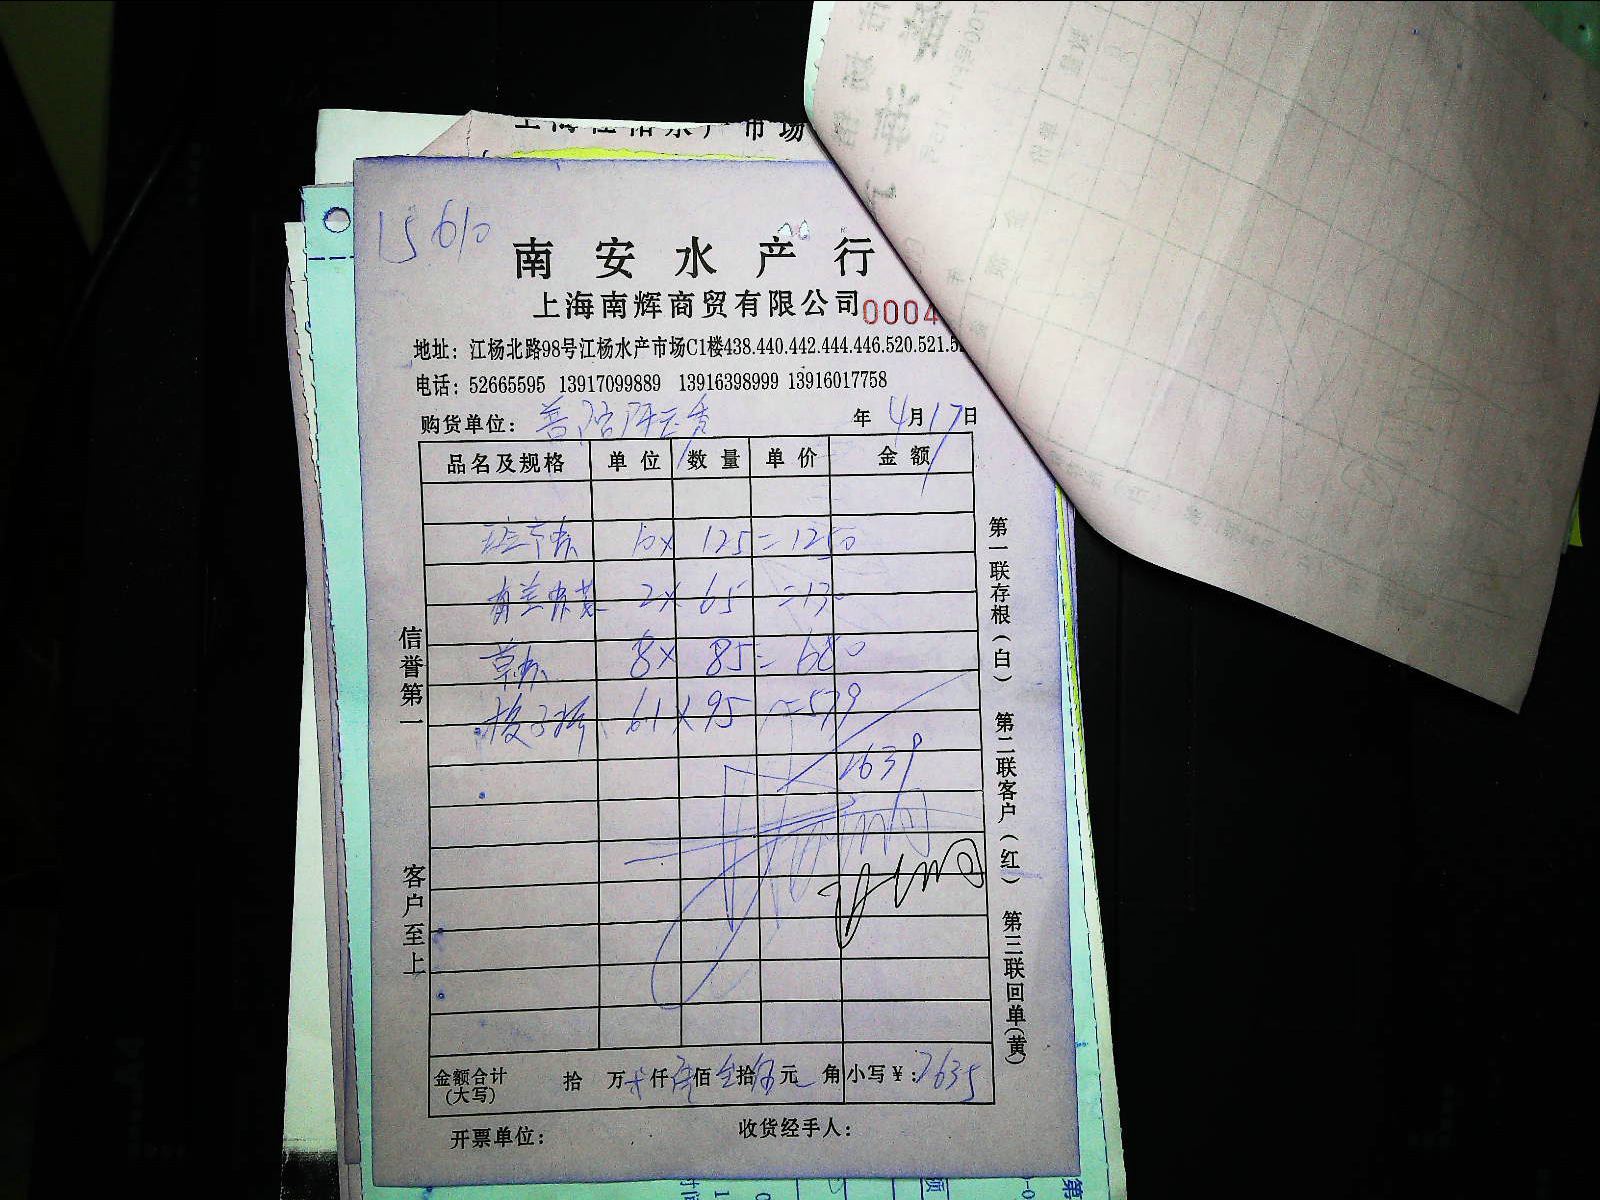 上海江阳水产市场
15610
南安水产行
上海南辉商贸有限公司 0004
地址：江杨北路98号江杨水产市场C1楼438.440.442.444.446.520.521.5
电话：52665595 13917099889 13916398999 13916017758
购货单位： 年 4月17日
品名及规格 单位 数量 单价 金额
10 x 125 = 1250
2 x 65 = 130
草虾 8 x 85 = 680
梭子蟹 6.1 x 95 = 579
2639
金额合计(大写) 拾 万 仟 佰 拾 元 角 小写￥：2635
开票单位： 收货经手人：
信誉第一 客户至上
第一联存根(白) 第二联客户(红) 第三联回单(黄)